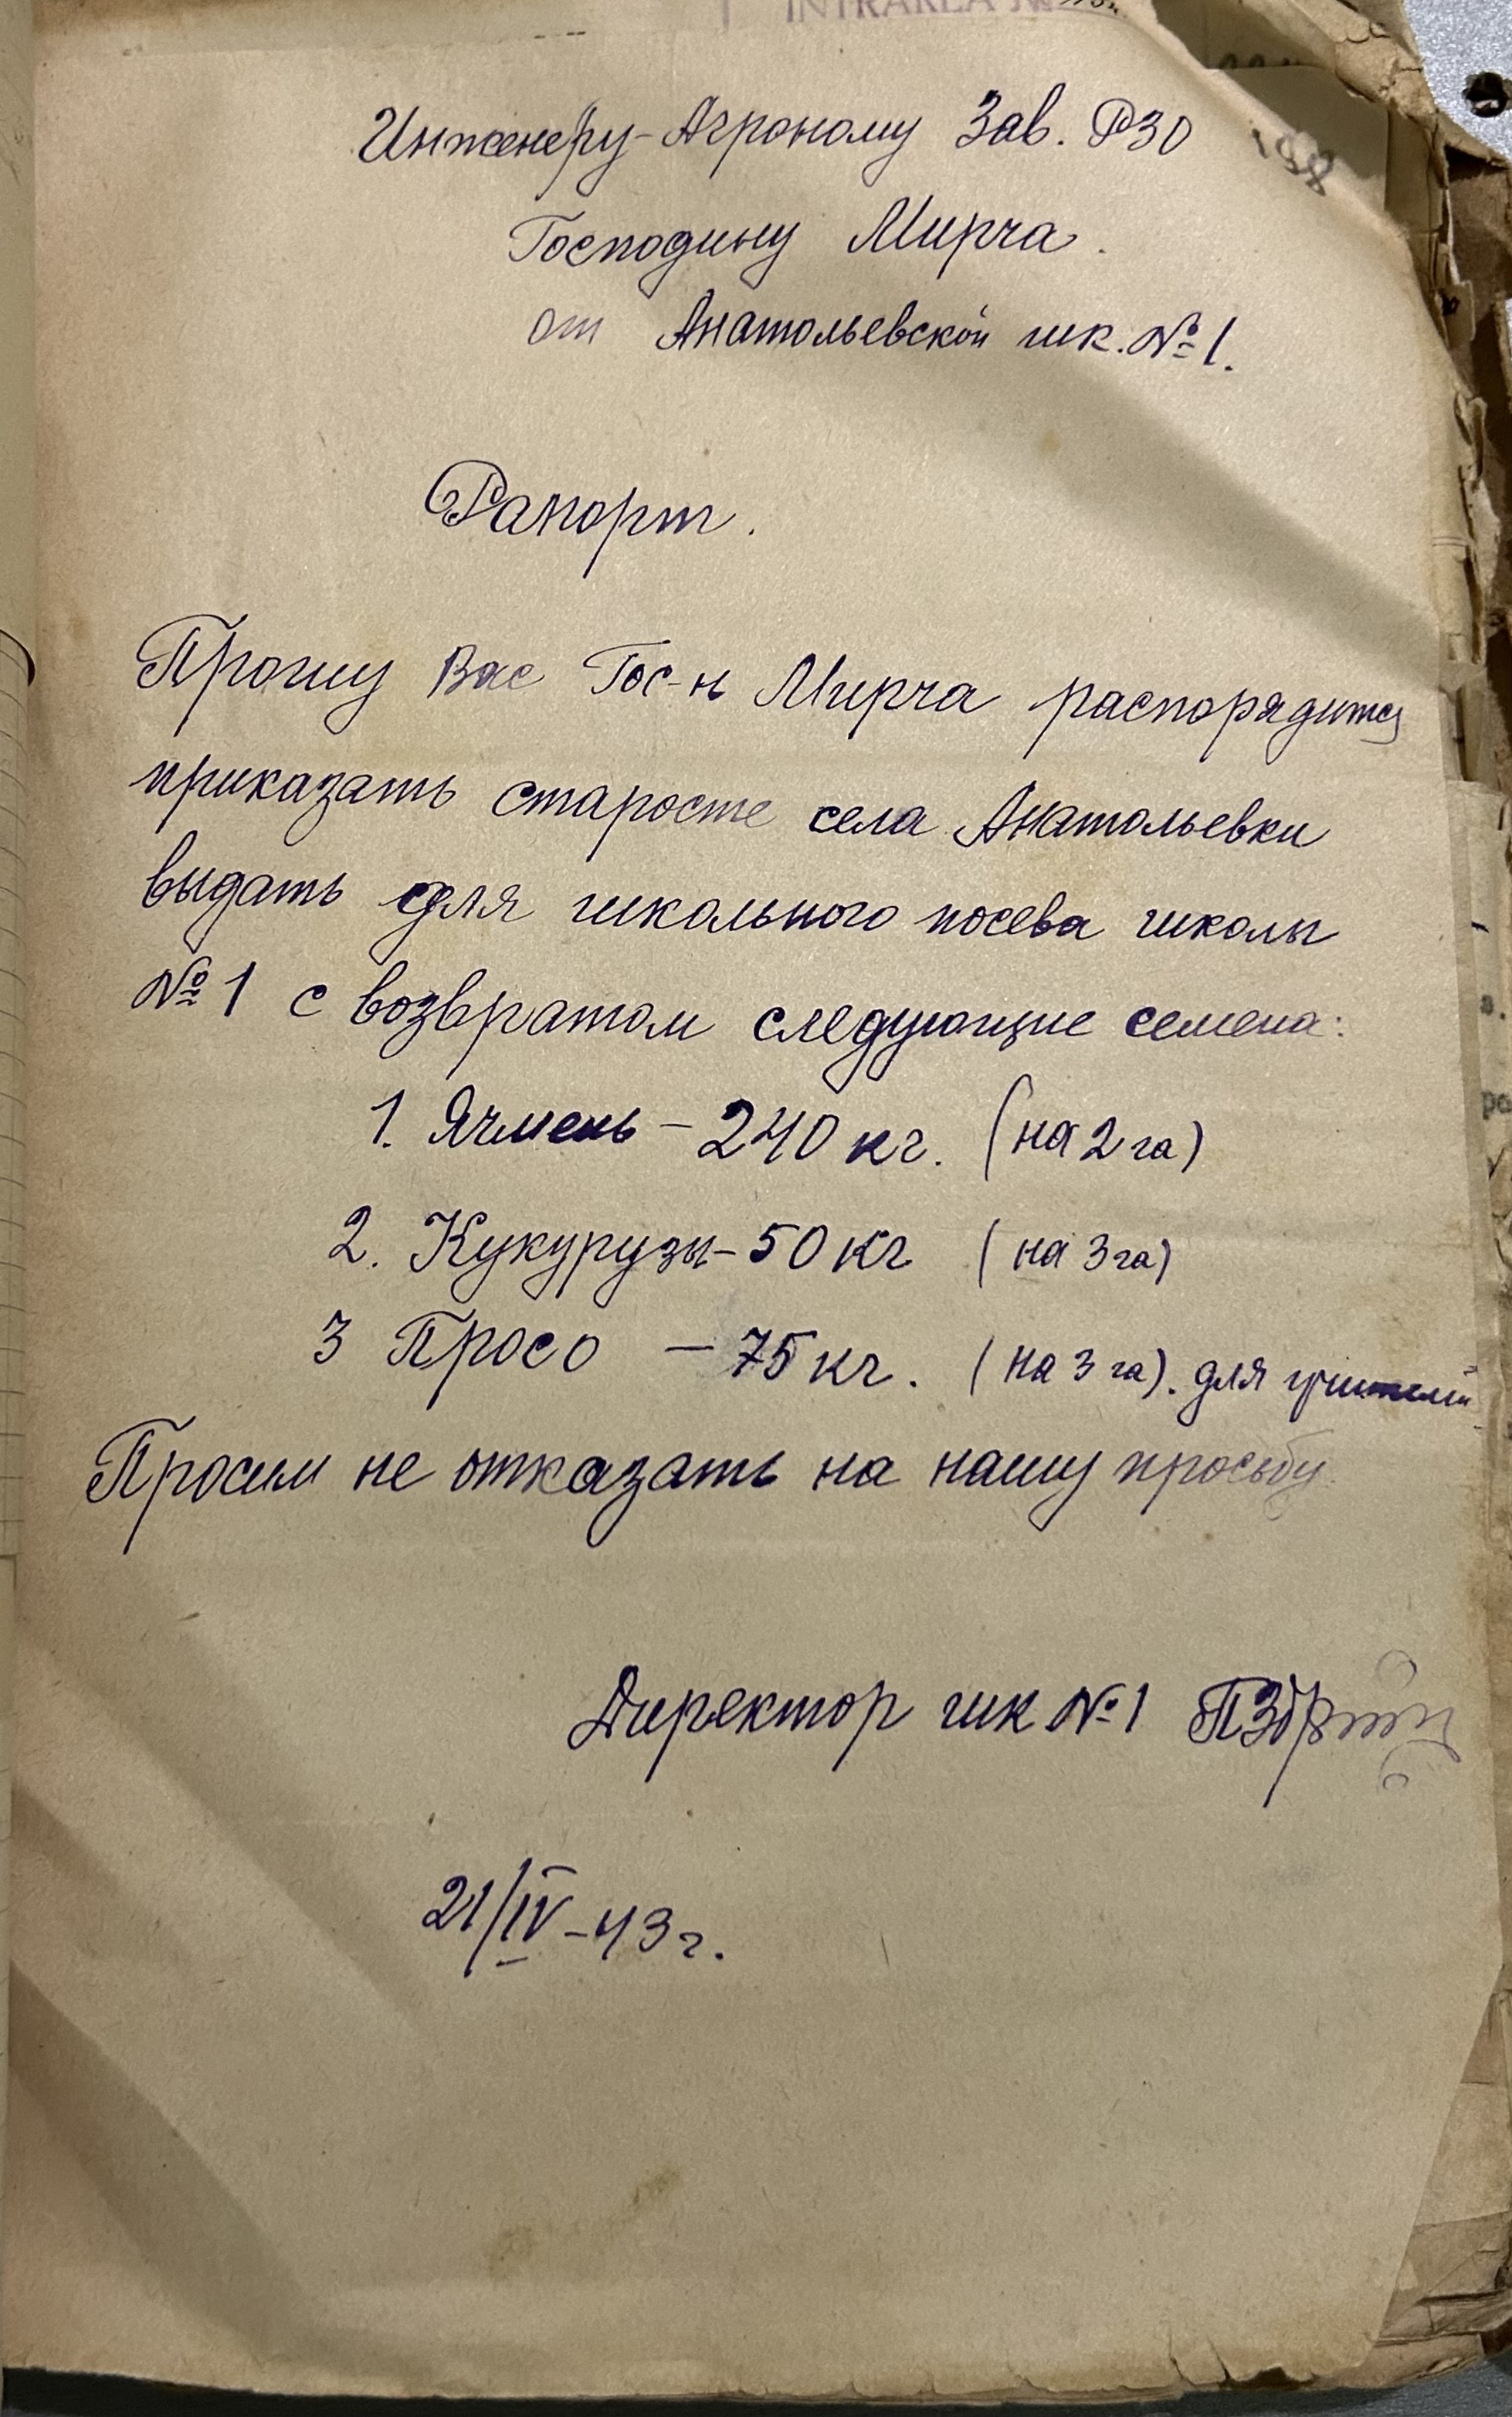 INTRAREA №
Инженеру-Агроному Зав. РЗО
198
Господину Мирча.
от Анатольевской шк. № 1.
Рапорт.
Прошу Вас Гос-н Мирча распорядится
приказать старосте села Анатольевки
выдать для школьного посева школы
№ 1 с возвратом следующие семена:
1. Ячмень – 240 кг. (на 2 га)
2. Кукурузы – 50 кг (на 3 га)
3 Просо – 75 кг. (на 3 га). для учителей
Просим не отказать на нашу просьбу.
Директор шк № 1
21/IV – 43 г.